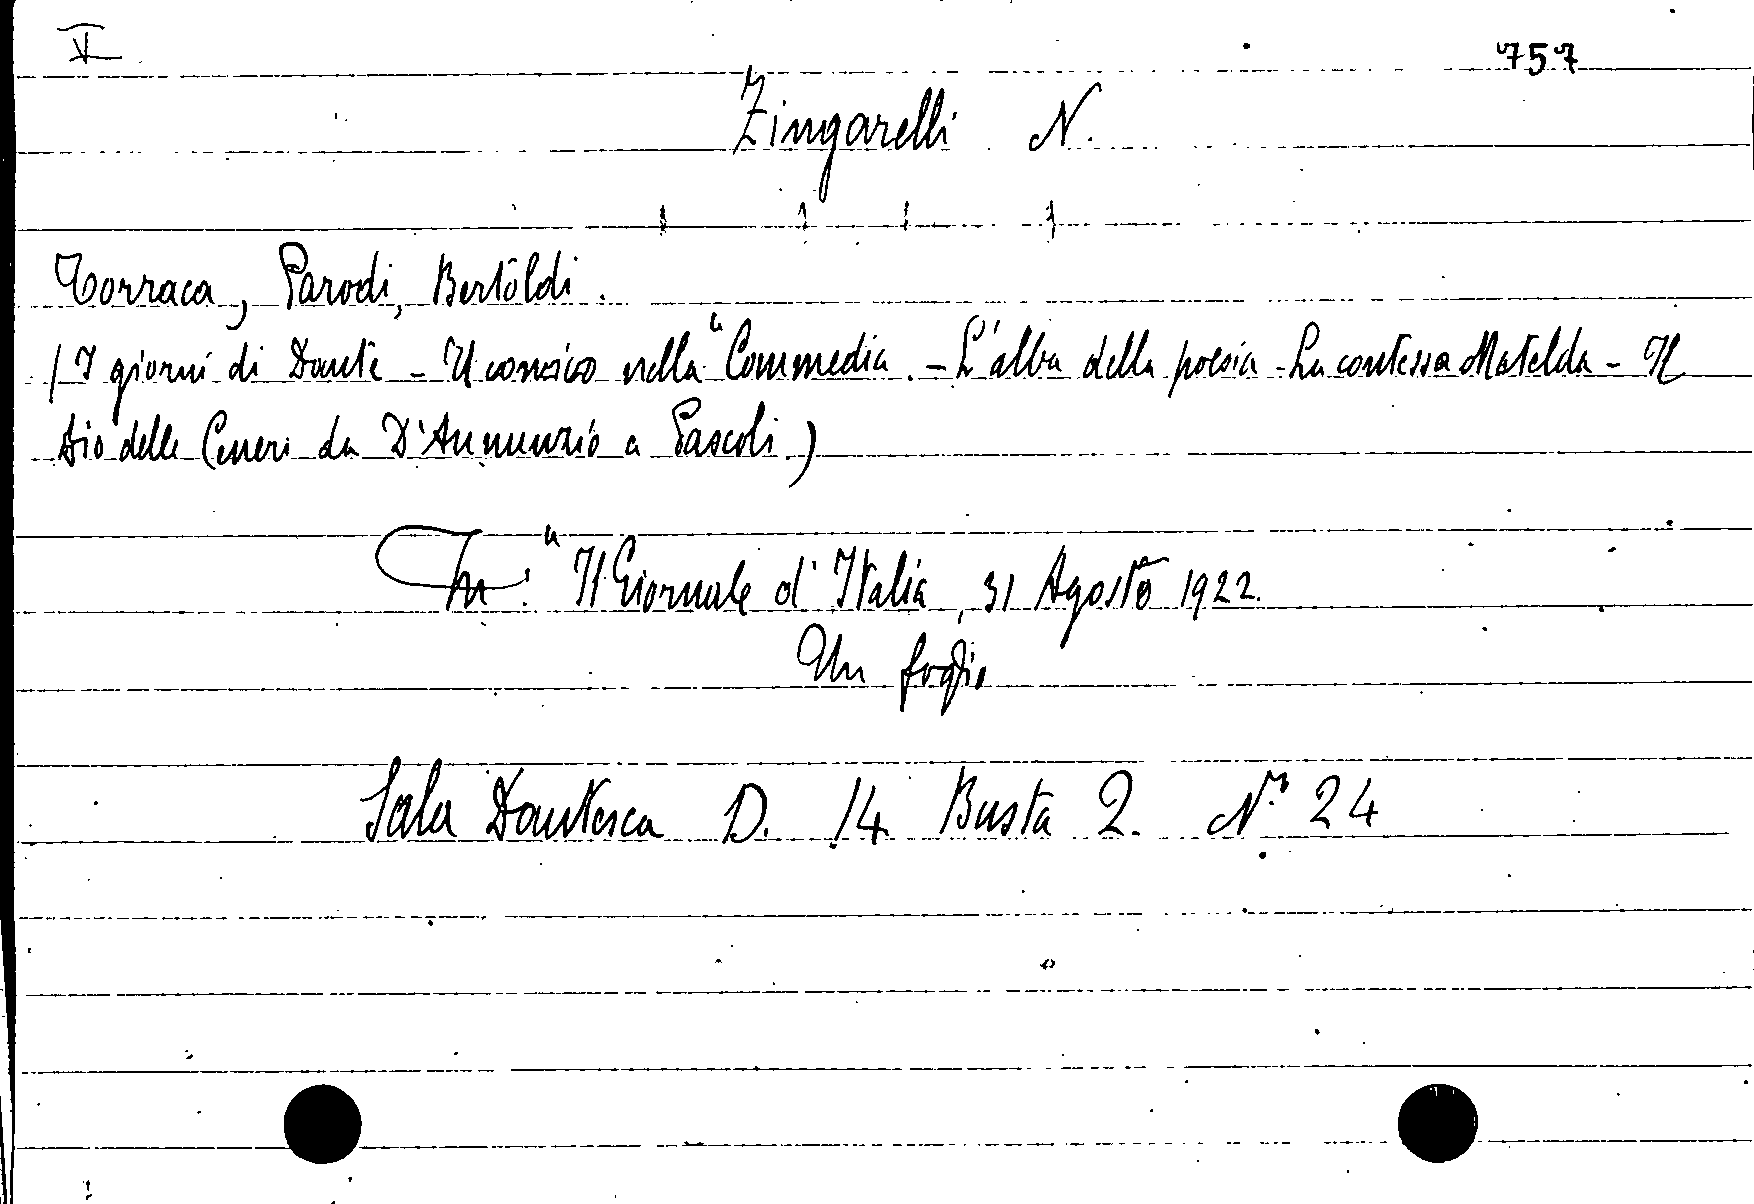 V 757
Zingarelli N.
Torraca, Parodi, Bertoldi.
(I giorni di Dante - Il comico nella "Commedia. - L'alba della poesia - La contessa Matelda - Il
Dio delle Ceneri da D'Annunzio a Pascoli.)
In: "Il Giornale d'Italia, 31 Agosto 1922.
Un foglio
Sala Dantesca D. 14 Busta 2. Nº 24